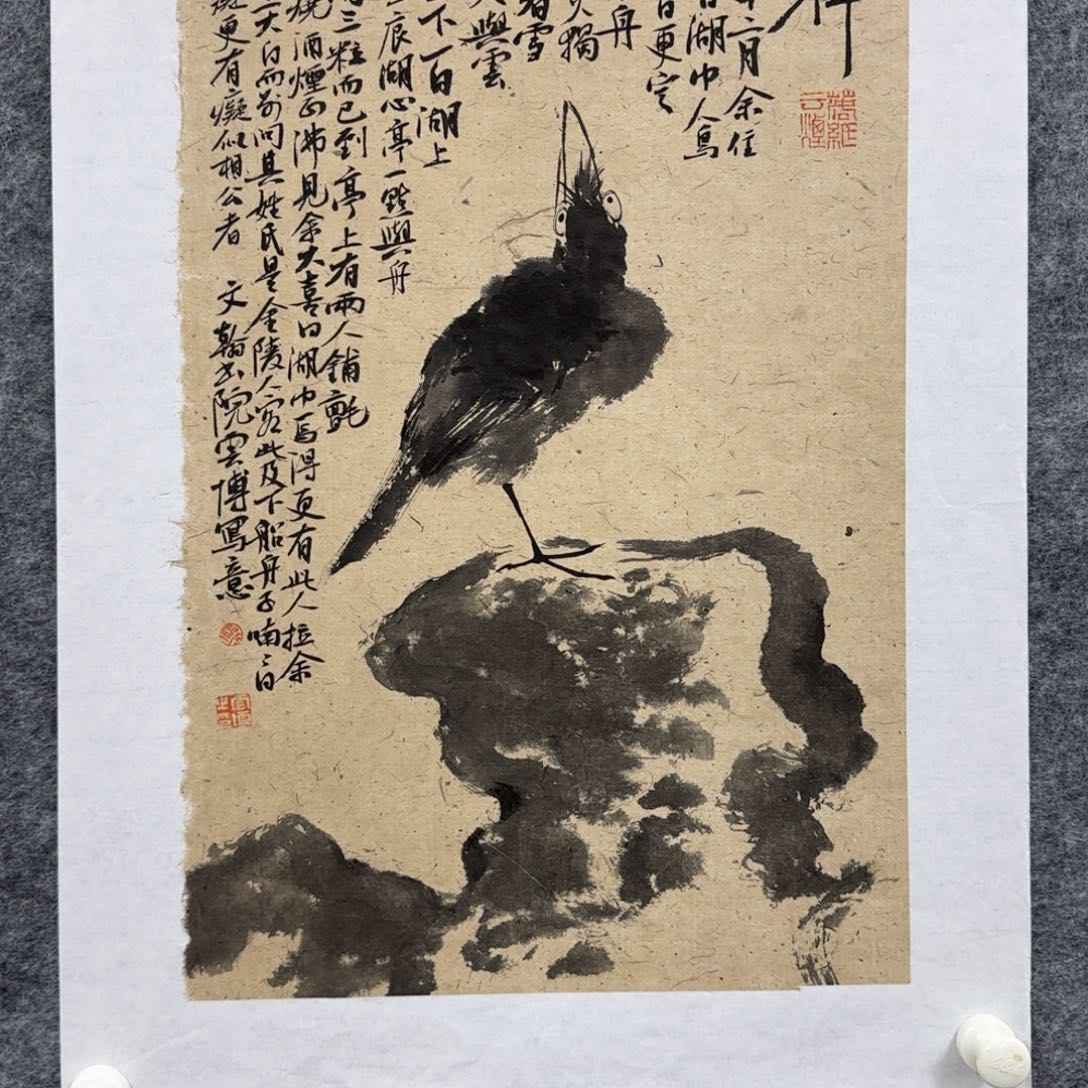 二月余住
日湖中人鳥
日更定
舟
火獨
看雪
天與雲
下一白湖上
一痕湖心亭一點與舟
三粒而已到亭上有兩人鋪氈
燒酒爐正沸見余大喜曰湖中焉得更有此人拉余
三大白而別問其姓氏是金陵人客此及下船舟子喃喃曰
癡更有癡似相公者 文翰書院雲博寫意